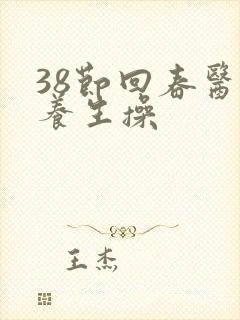 38節回春醫
養生操
王杰